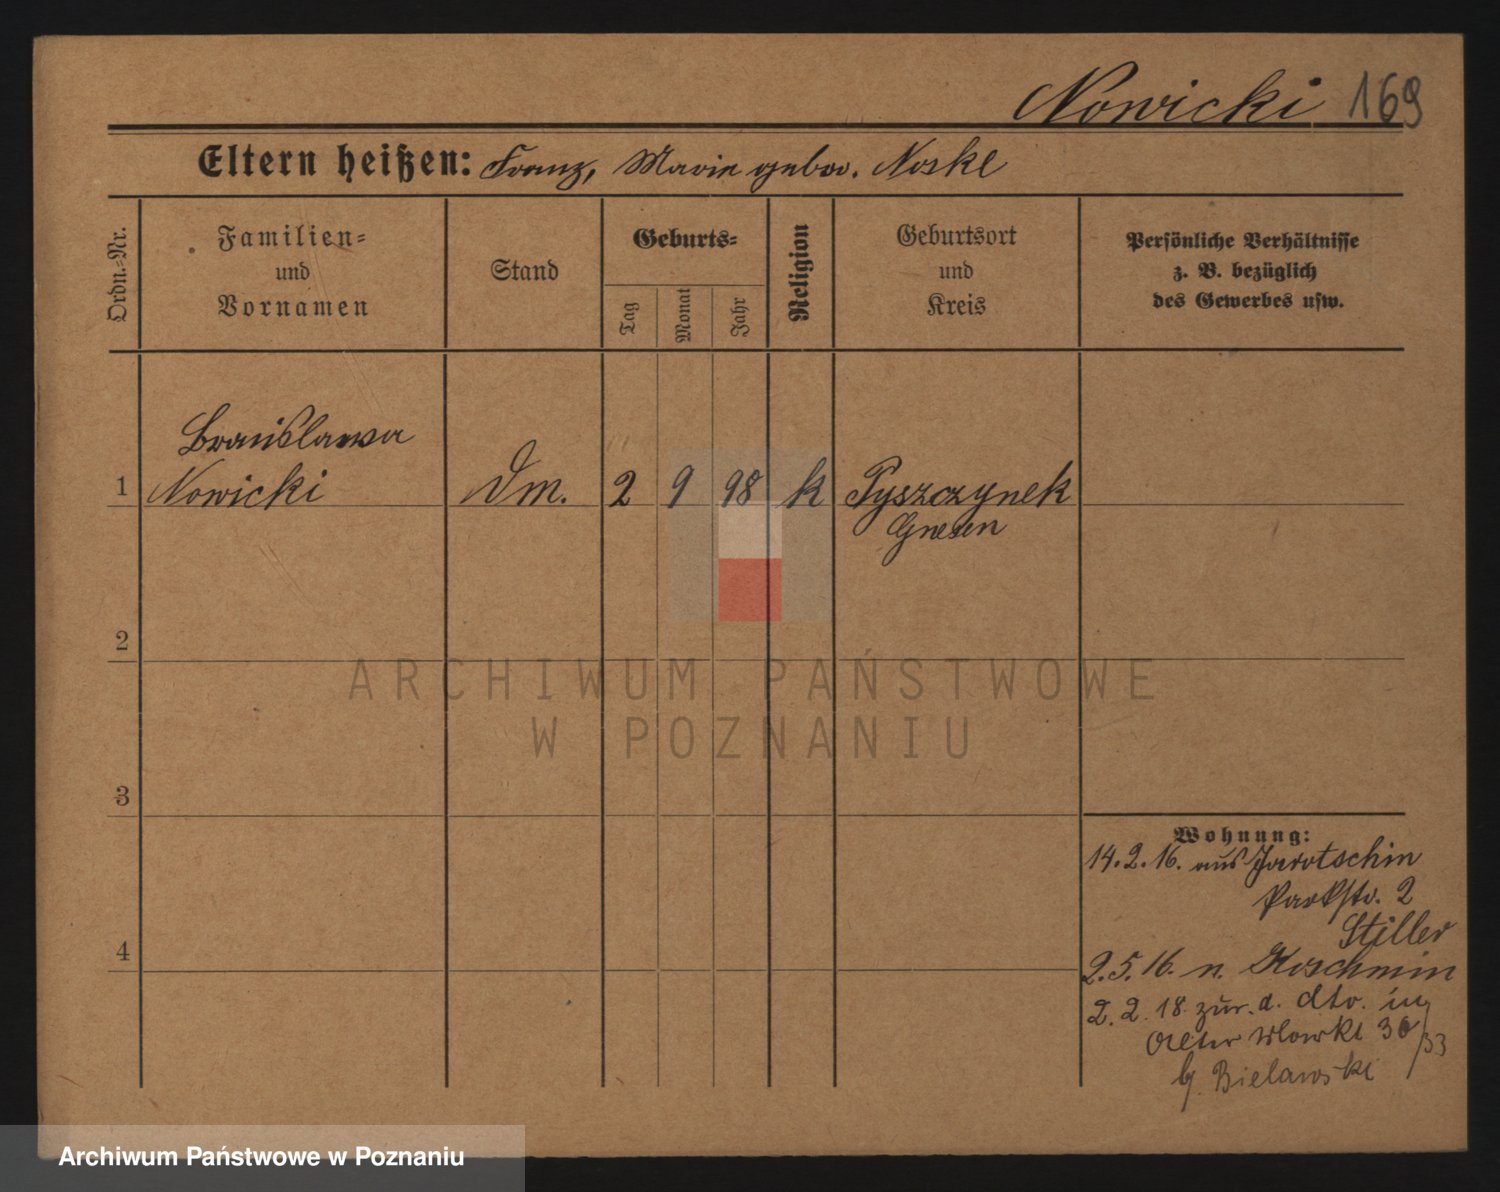 Nowicki 169
Eltern heißen: Franz, Marie gebor. Noske
Ordn.-Nr.
Familien-
und
Vornamen
Stand
Geburts-
Tag
Monat
Jahr
Religion
Geburtsort
und
Kreis
Persönliche Verhältnisse
z. B. bezüglich
des Gewerbes usw.
Bronislawa
1 Nowicki Dm. 2 9 98 k Pyszczynek
Gnesen
2
3
4
Wohnung:
14.2.16. aus Jarotschin
Parkstr. 2
Stiller
2.5.16. n. Koschmin
2.2.18 zur. d. dto. in
Alter Markt 36/33
b. Bielawski
ARCHIWUM PAŃSTWOWE
W POZNANIU
Archiwum Państwowe w Poznaniu